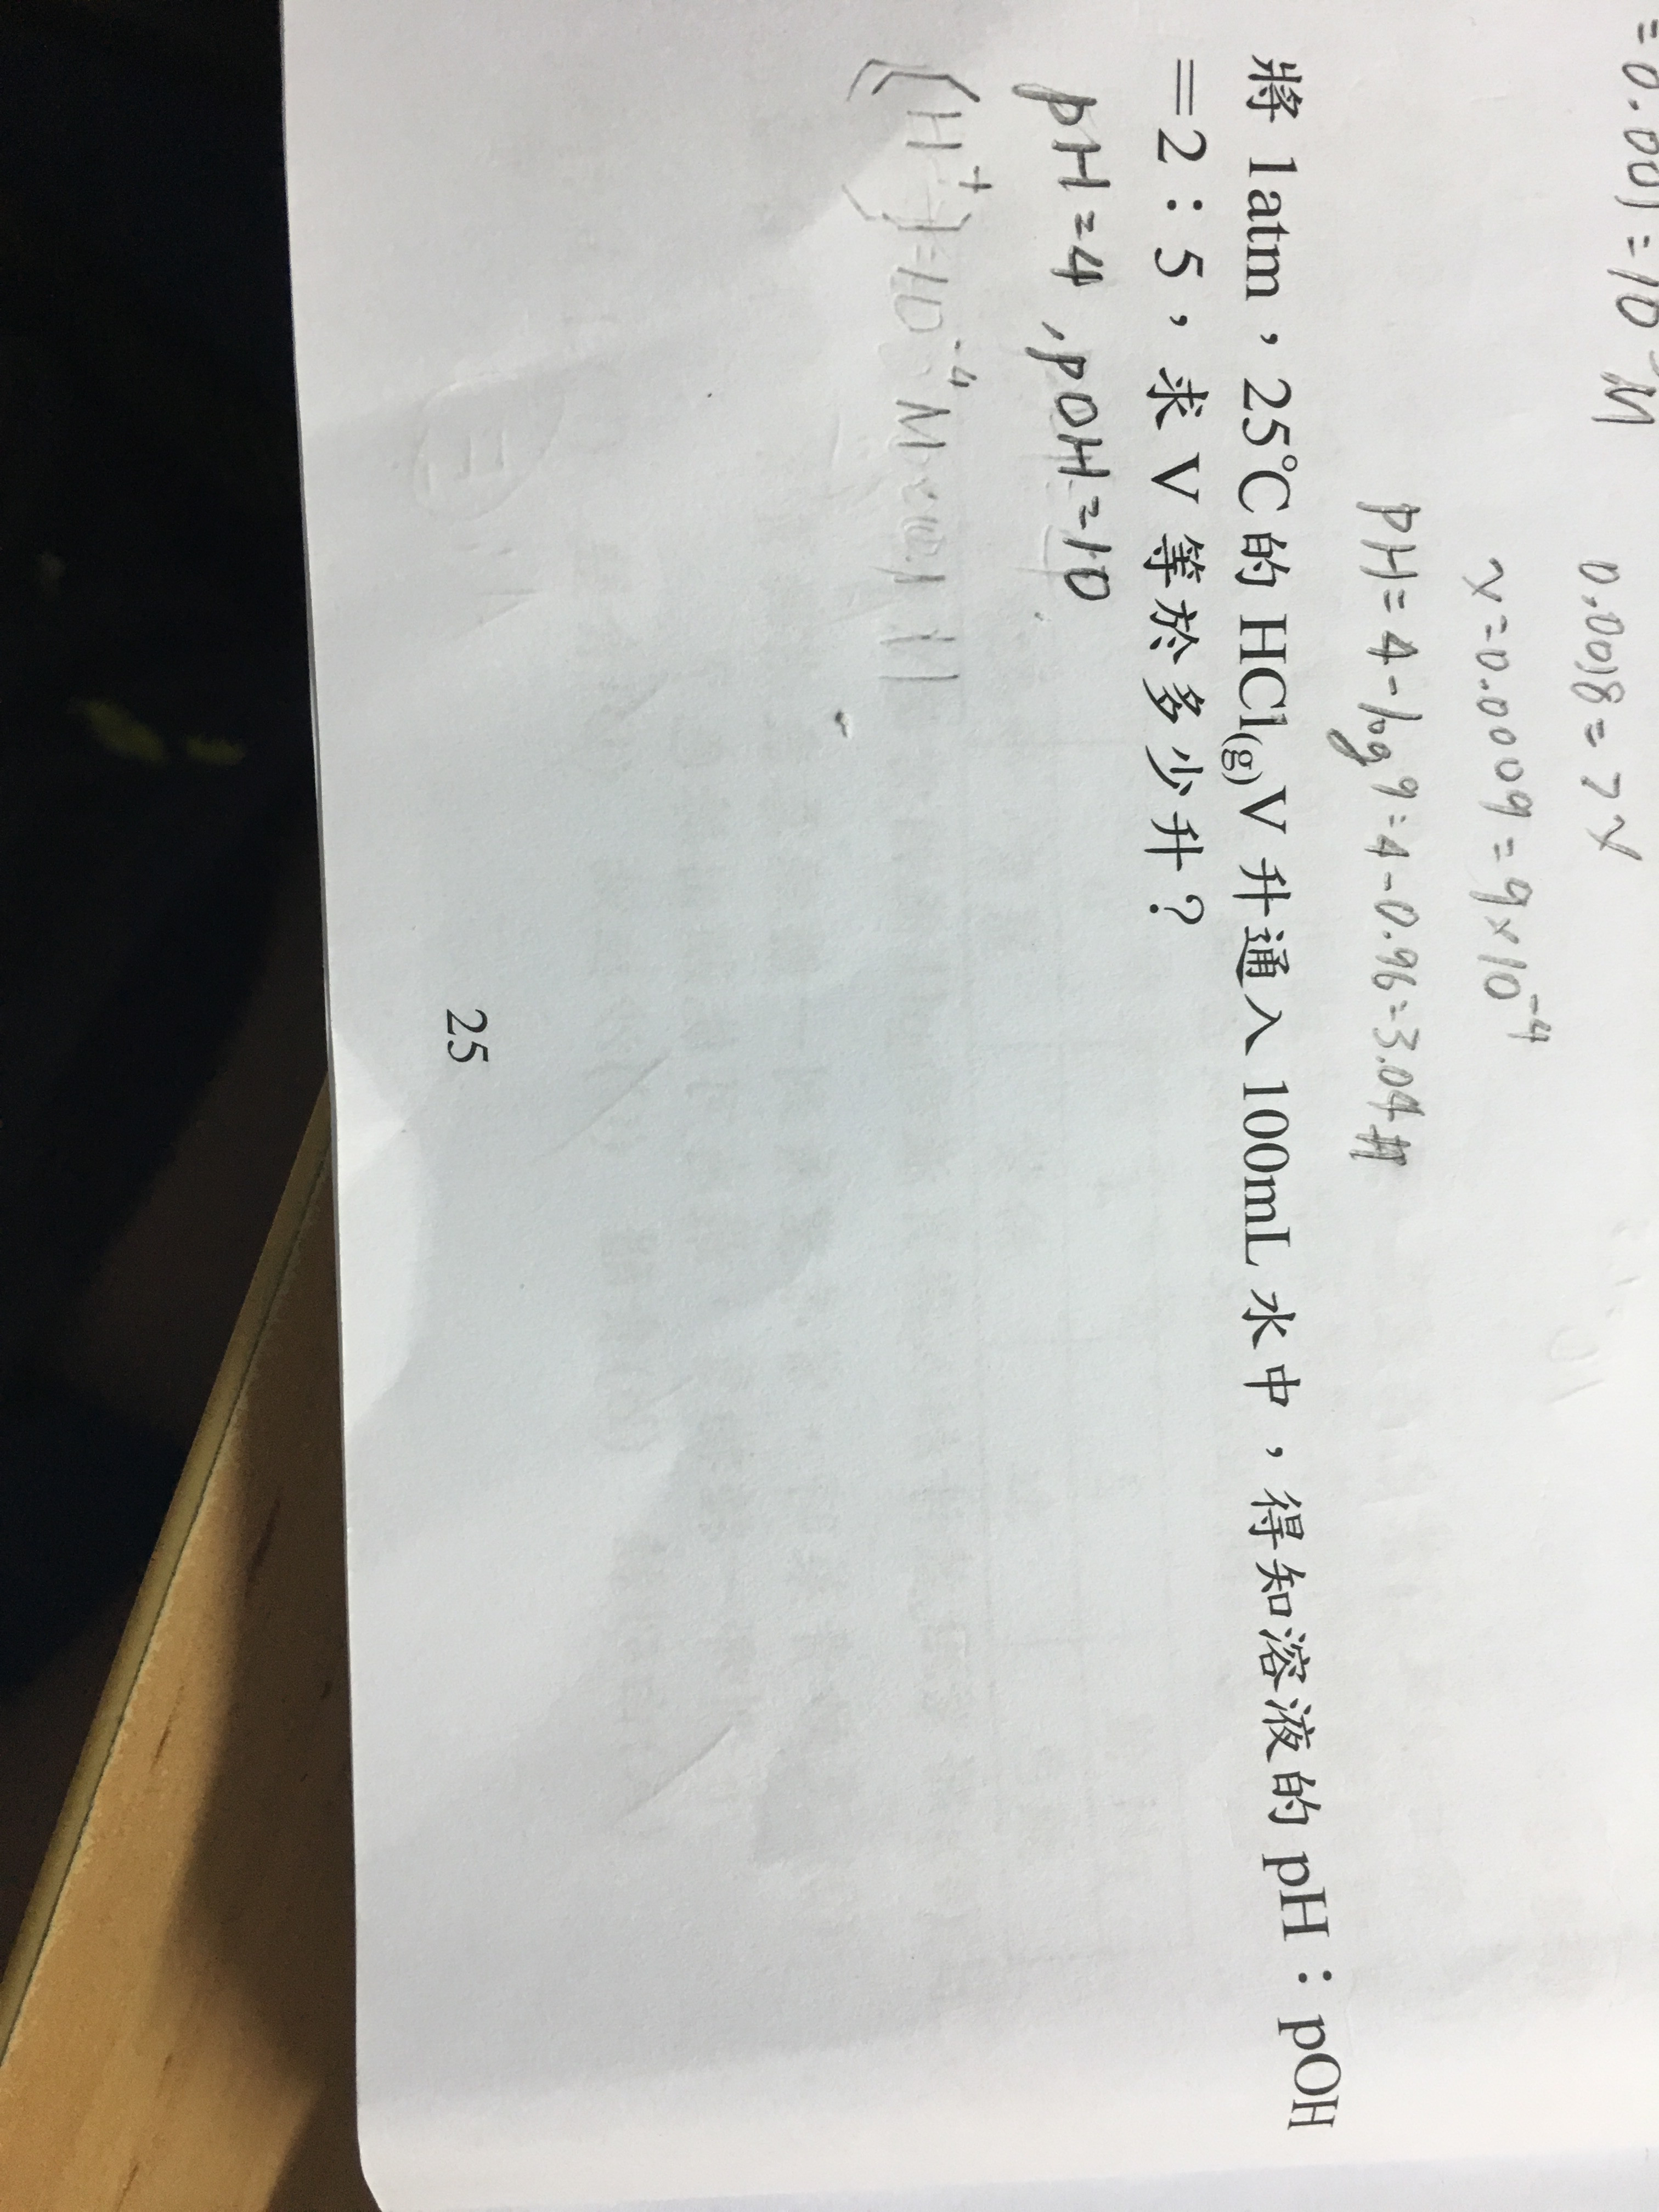 =0.001=10⁻ M
0.0018=2x
x=0.0009=9×10⁻⁴
pH=4-log9=4-0.96=3.04#
將 1atm，25℃的 HCl(g)V 升通入 100mL 水中，得知溶液的 pH：pOH
=2：5，求 V 等於多少升？
pH=4，pOH=10
[H⁺]=10⁻⁴M
25